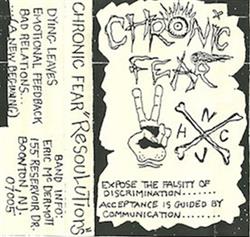 DYING LEAVES
EMOTIONAL FEEDBACK
BAD RELATIONS...
...(A NEW BEGINNING)
BAND INFO:
ERIC McDERMOTT
155 RESERVOIR DR.
BOONTON, N.J.
07005
CHRONIC FEAR "RESOULUTIONS"
CHRONIC
FEAR
N
H C
V
EXPOSE THE FALSITY OF
DISCRIMINATION.......
ACCEPTANCE IS GUIDED BY
COMMUNICATION........